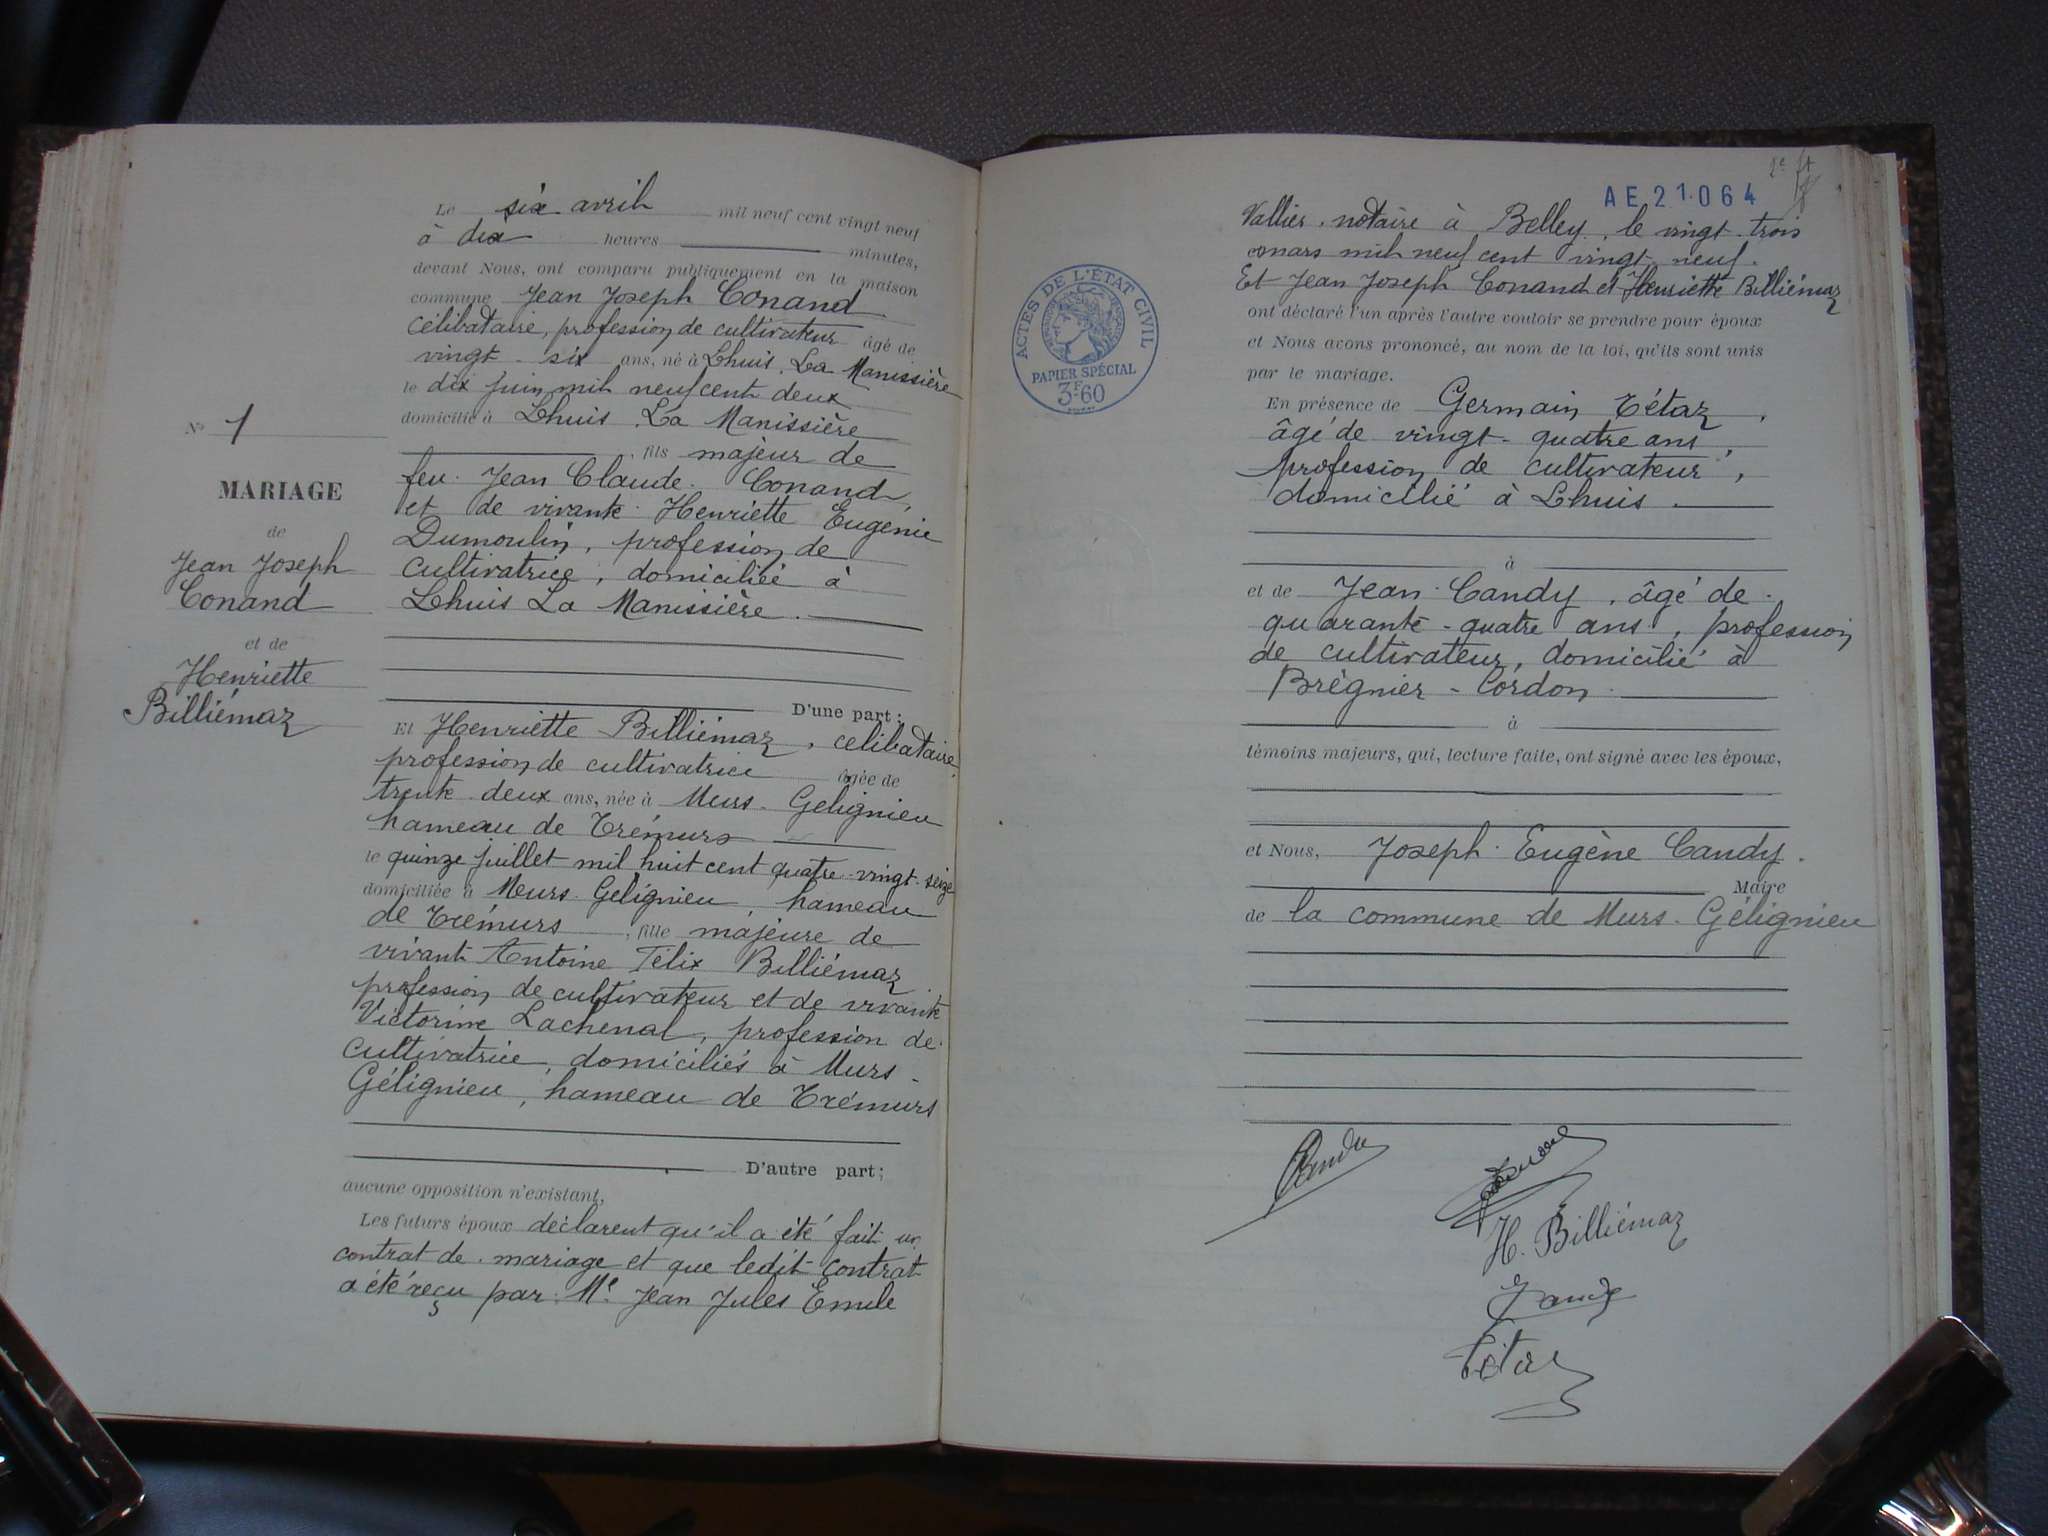 Le six avril mil neuf cent vingt neuf
à dix heures minutes,
devant Nous, ont comparu publiquement en la maison
commune Jean Joseph Conand
célibataire, profession de cultivateur âgé de
vingt-six ans, né à Lhuis, La Manissière
le dix juin mil neuf cent deux
domicilié à Lhuis, La Manissière
, fils majeur de
feu Jean Claude Conand,
et de vivante Henriette Eugénie
Dumoulin, profession de
cultivatrice, domiciliée à
Lhuis La Manissière.
D'une part;
No 1
MARIAGE
de
Jean Joseph
Conand
et de
Henriette
Billiémaz
Et Henriette Billiémaz, célibataire,
profession de cultivatrice âgée de
trente-deux ans, née à Murs-Gélignieu
hameau de Trémurs
le quinze juillet mil huit cent quatre-vingt-seize
domiciliée à Murs-Gélignieu, hameau
de Trémurs, fille majeure de
vivant Antoine Félix Billiémaz
profession de cultivateur et de vivante
Victorine Lachenal, profession de
cultivatrice, domiciliés à Murs-
Gélignieu, hameau de Trémurs
D'autre part;
aucune opposition n'existant,
Les futurs époux déclarent qu'il a été fait un
contrat de mariage et que ledit contrat
a été reçu par Me Jean Jules Emile
AE21.064
Vallier, notaire à Belley, le vingt-trois
mars mil neuf cent vingt neuf.
Et Jean Joseph Conand et Henriette Billiémaz
ont déclaré l'un après l'autre vouloir se prendre pour époux
et Nous avons prononcé, au nom de la loi, qu'ils sont unis
par le mariage.
ACTES DE L'ÉTAT CIVIL
PAPIER SPÉCIAL
3F60
En présence de Germain Tétaz,
âgé de vingt-quatre ans,
profession de cultivateur,
domicilié à Lhuis.
à
et de Jean Candy, âgé de
quarante-quatre ans, profession
de cultivateur, domicilié à
Brégnier-Cordon.
à
témoins majeurs, qui, lecture faite, ont signé avec les époux,
et Nous, Joseph Eugène Candy.
Maire
de la commune de Murs-Gélignieu
H. Billiémaz
Tétaz